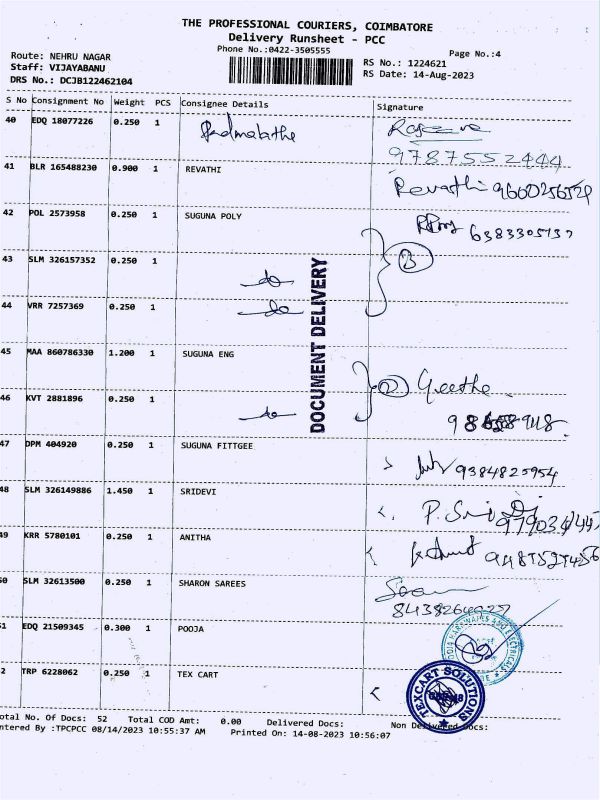 THE PROFESSIONAL COURIERS, COIMBATORE
Delivery Runsheet - PCC
Phone No.:0422-3505555
Page No.:4
Route: NEHRU NAGAR
Staff: VIJAYABANU
DRS No.: DCJB122462104
RS No.: 1224621
RS Date: 14-Aug-2023
S No Consignment No Weight PCS Consignee Details Signature
40 EDQ 18077226 0.250 1
9787552444
41 BLR 165488230 0.900 1 REVATHI
Revathi
42 POL 2573958 0.250 1 SUGUNA POLY
6383305737
43 SLM 326157352 0.250 1 do
3
44 VRR 7257369 0.250 1 do
DOCUMENT DELIVERY
45 MAA 860786330 1.200 1 SUGUNA ENG
2 Geetha
46 KVT 2881896 0.250 1 do
47 DPM 404920 0.250 1 SUGUNA FITTGEE
9384825954
48 SLM 326149886 1.450 1 SRIDEVI
49 KRR 5780101 0.250 1 ANITHA
50 SLM 32613500 0.250 1 SHARON SAREES
51 EDQ 21509345 0.300 1 POOJA
POOJA HARDWARES AND ELECTRICALS
2 TRP 6228062 0.250 1 TEX CART
TEXCART SOLUTIONS
otal No. Of Docs: 52 Total COD Amt: 0.00 Delivered Docs: Non Delivered Docs:
ntered By :TPCPCC 08/14/2023 10:55:37 AM Printed On: 14-08-2023 10:56:07